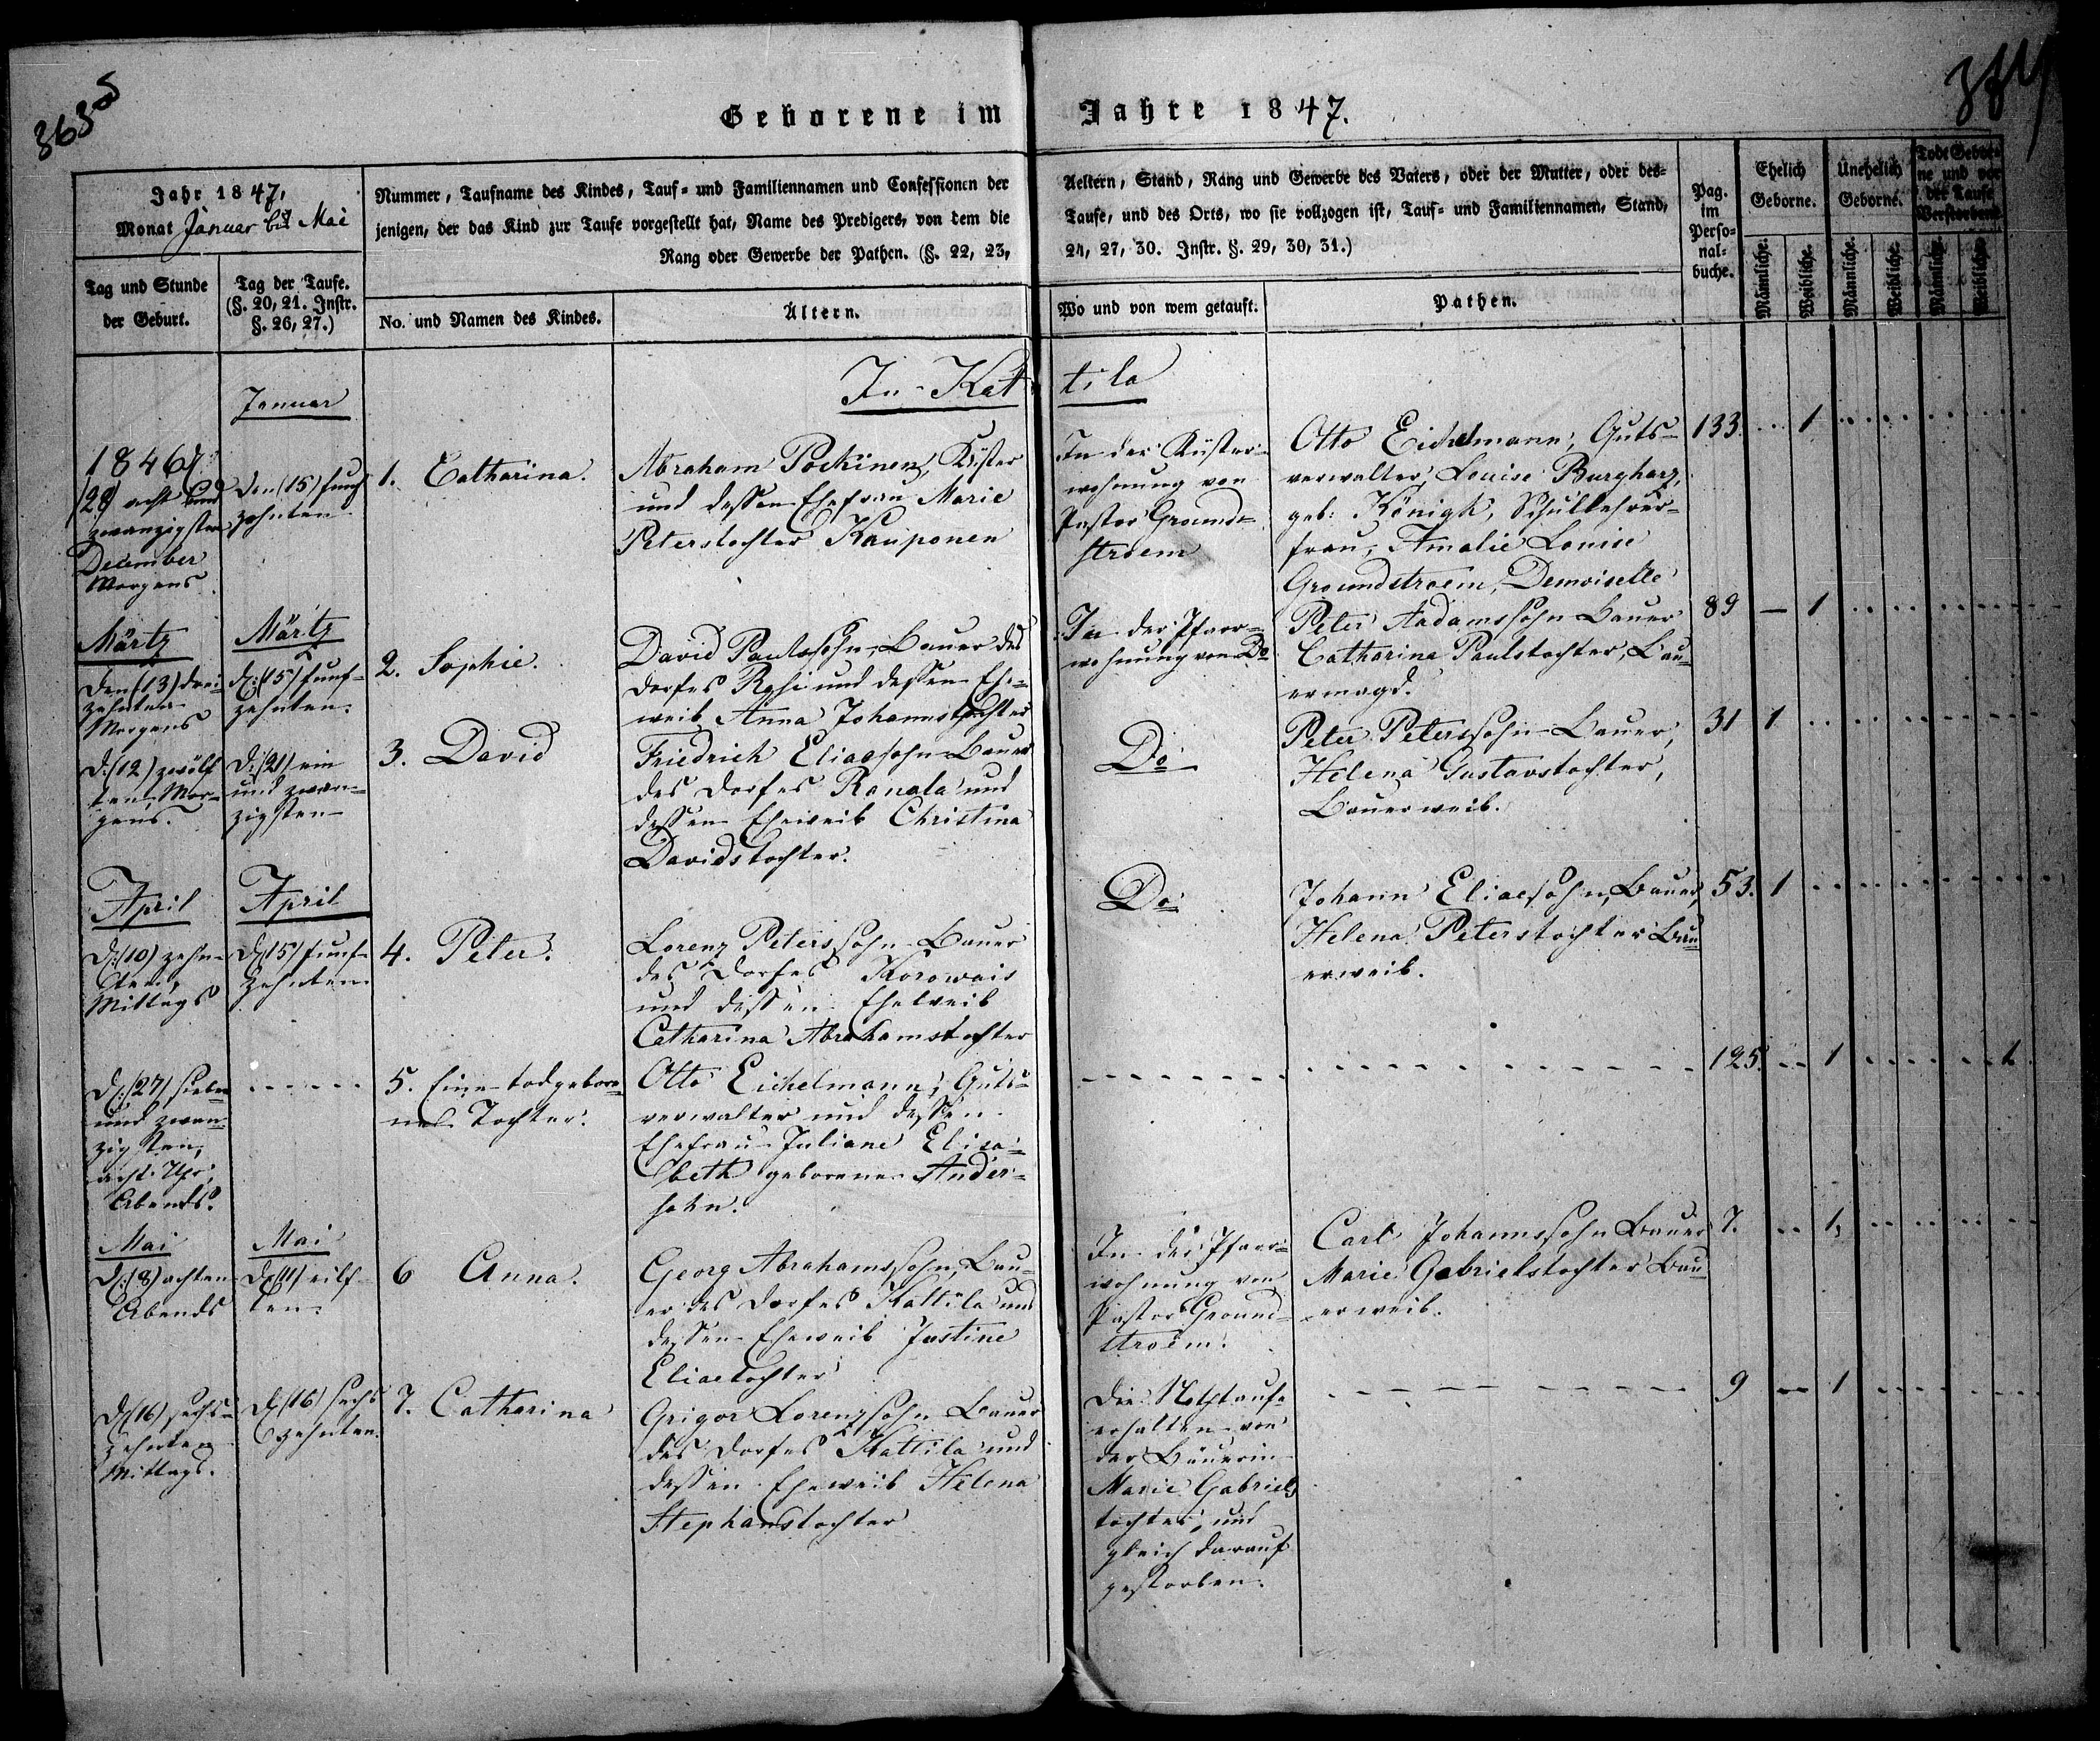 3635
Geborene im Jahre 1847.
Jahr 1847,
Monat Januar bis Mai
Nummer, Taufname des Kindes, Tauf- und Familiennamen und Confessionen der
jenigen, der das Kind zur Taufe vorgestellt hat, Name des Predigers, von dem die
Rang oder Gewerbe der Pathen. (§. 22, 23,
Aeltern, Stand, Rang und Gewerbe des Vaters, oder der Mutter, oder des-
Taufe, und des Orts, wo sie vollzogen ist, Tauf- und Familiennamen, Stand,
24, 27, 30. Instr. §. 29, 30, 31.)
Pag.
im
Perso-
nal-
buche.
Ehelich
Geborne.
Unehelich
Geborne.
Todt Gebor-
ne und vor
der Taufe
Verstorbene
Männliche.
Weibliche.
Männliche.
Weibliche.
Männliche.
Weibliche.
Tag und Stunde
der Geburt.
Tag der Taufe.
(§. 20, 21. Instr.
§. 26, 27.)
No. und Namen des Kindes.
Ältern.
Wo und von wem getauft.
Pathen.
In Kattila
Januar
1846
(28) acht und
zwanzigsten
December
Morgens
Den (15) funf
zehnten
1. Catharina.
Abraham Pockinen, Küster
und dessen Ehefrau Marie
Peterstochter Kauponen
In der Küster-
wohnung von
Pastor Ground-
stroem
Otto Eichelmann, Guts-
verwalter, Louise Burgharz,
geb: Königk, Schullehrer-
frau, Amalie Louise
Groundstroem, Demoiselle
133. .. 1
Märtz
Den (13) drei-
zehnten
Morgens
Märtz
d: (15) funf-
zehnten.
2. Sophie.
David Paulssohn, Bauer des
Dorfes Ryhi und dessen Ehe-
weib Anna Johannstochter
In der Pfarr-
wohnung von Do
Peter Aadamssohn Bauer
Catharina Paulstochter, Bau-
ermagd.
89 — 1
D: (12) zwölf
ten Mor-
gens.
D: (21) ein
und zwan-
zigsten
3. David
Friedrich Eliassohn Bauer
des Dorfes Ranala und
dessen Eheweib Christina
Davidstochter.
Do
Peter Peterssohn Bauer,
Helena Gustavstochter,
Bauerweib.
31 1
April
D: (10) zehn-
ten,
Mittags
April
D: (15) funf-
zehnten
4. Peter.
Lorenz Peterssohn Bauer
des Dorfes Korowais
und dessen Eheweib
Catharina Abrahamstochter
Do
Johann Eliassohn, Bauer,
Helena Peterstochter Bau
erweib.
53. 1
D: (27) sieben
und zwan-
zigsten,
acht Uhr,
Abends.
5. Eine todgebore-
ne Tochter.
Otto Eichelmann, Guts-
verwalter und dessen
Ehefrau Juliane Elisa-
beth geborene Ander-
sohn.
125. .. 1 1.
Mai
D: (8) achten
Abends
Mai
D: (11) eilf-
ten.
6 Anna.
Georg Abrahamssohn, Bau-
er des Dorfes Kattila und
dessen Eheweib Justine
Eliastochter
In der Pfarr-
wohnung von
Pastor Ground-
stroem.
Carl Johannssohn Bauer
Marie Gabrielstochter Bau
erweib.
7. .. 1,
D: (16) sechs-
zehnten
Mittags.
D: (16) sechs
zehnten.
7. Catharina
Grigor Lorenzsohn Bauer
des Dorfes Kattila und
dessen Eheweib Helena
Stephanstochter
Die Nothtaufe
erhalten von
der Bäuerin
Marie Gabriels
tochter, und
gleich darauf
gestorben.
9 — 1